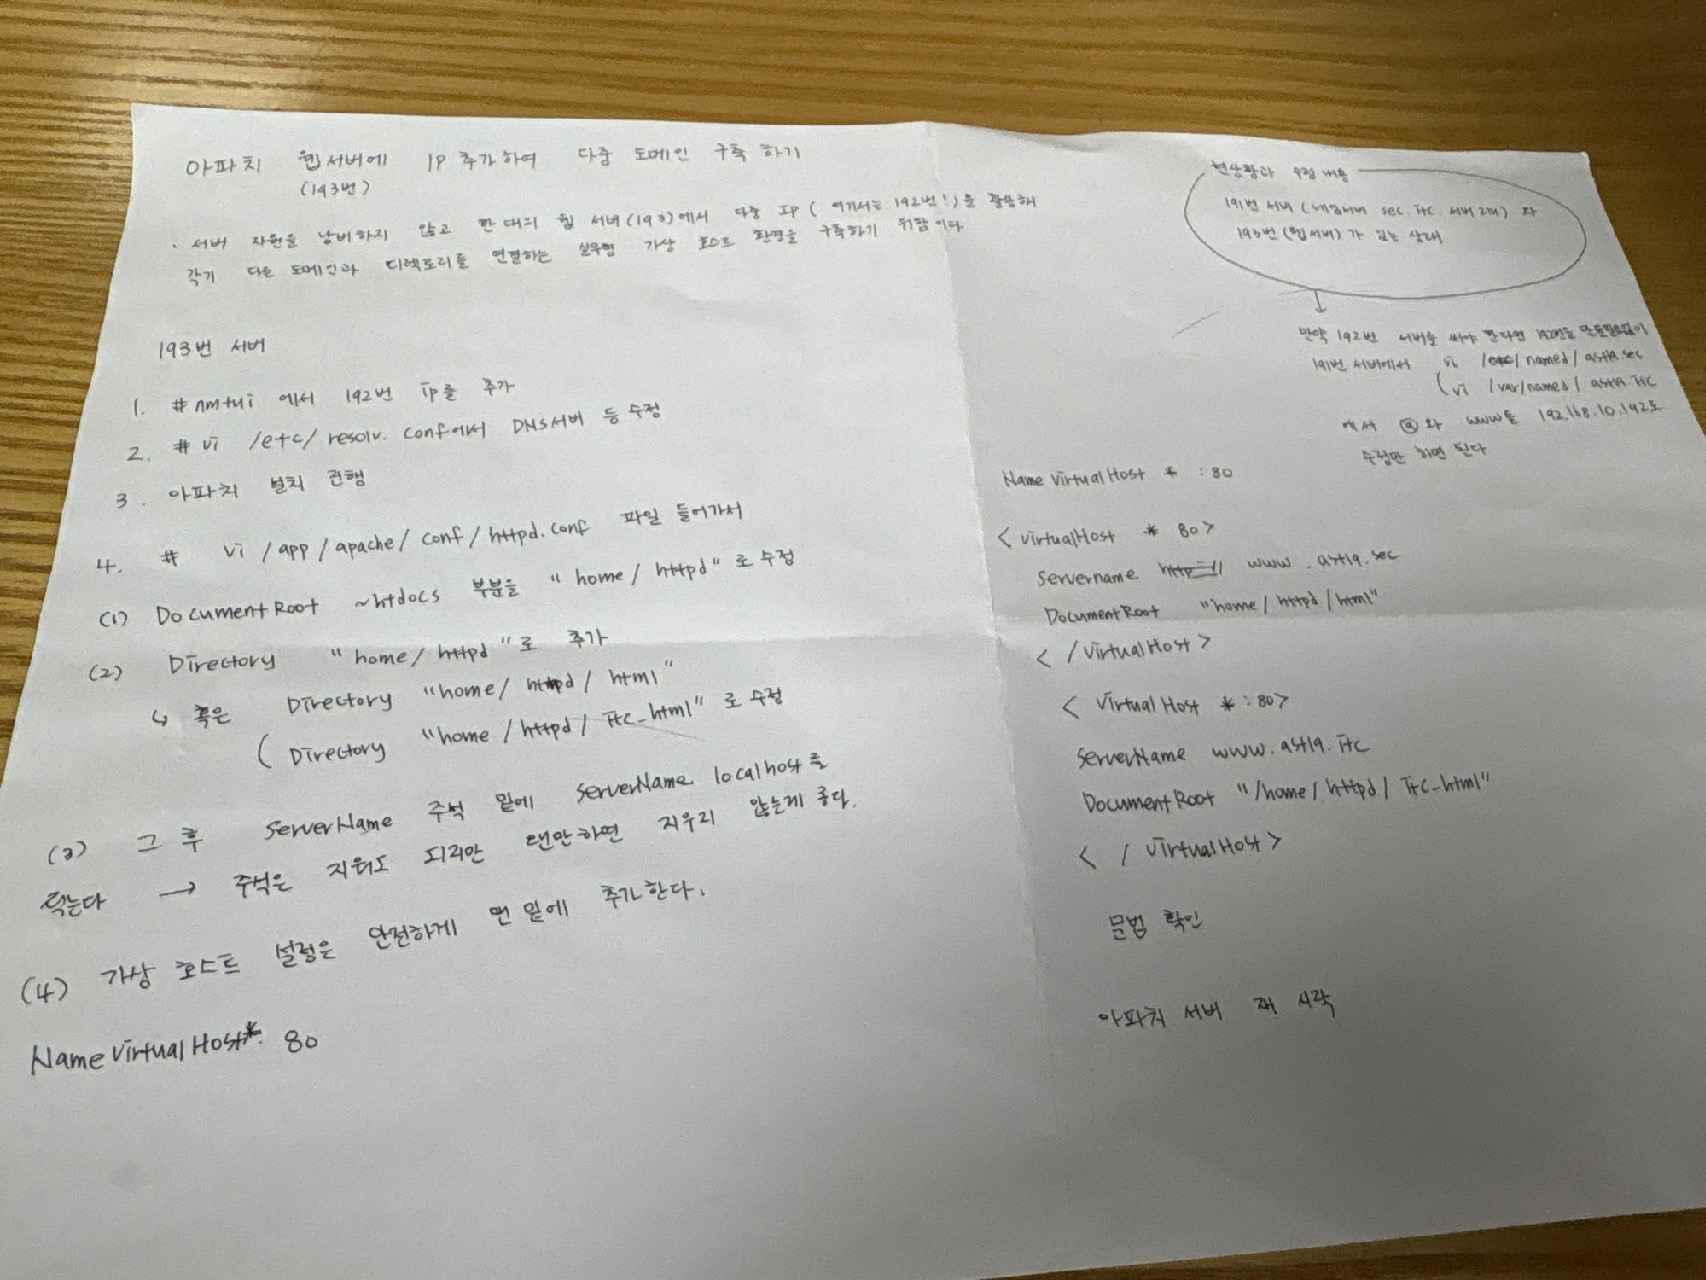 아파치 웹서버에 IP 추가하여 다중 도메인 구축 하기
(193번)
. 서버 자원을 낭비하지 않고 한 대의 웹 서버(193)에서 다중 IP ( 여기서는 192번!)을 활용해
각기 다른 도메인과 디렉토리를 연결하는 실무형 가상 호스트 환경을 구축하기 위함이다
193번 서버
1. # nmtui 에서 192번 ip를 추가
2. # vi /etc/ resolv. conf에서 DNS서버 등 수정
3. 아파치 설치 진행
4. # vi /app/apache/ conf/httpd.conf 파일 들어가서
(1) DocumentRoot ~htdocs 부분을 "home/ httpd"로 수정
(2) Directory "home/ httpd"로 추가
↳ 혹은 Directory "home/ httpd/ html"
( Directory "home/httpd/ itc_html"로 수정
(3) 그 후 ServerName 주석 밑에 ServerName localhost를
적는다 → 주석은 지워도 되지만 웬만하면 지우지 않는게 좋다.
(4) 가상 호스트 설정은 안전하게 맨 밑에 추가한다.
Name Virtual Host*: 80
현상황과 수정 내용
191번 서버 (네임서버 sec. itc. 서버 2대) 와
193번(웹서버)가 있는 상태
↓
만약 192번 서버를 써야 한다면 192번을 만들필요없이
191번 서버에서 vi /etc/ named/ astla.sec
( vi /var/named/ astla.itc
에서 @와 www을 192.168.10.192로
수정만 하면 된다
Name VirtualHost * :80
< VirtualHost * 80>
Servername http:// www.astla.sec
DocumentRoot "home/httpd/html"
< /VirtualHost>
< VirtualHost *:80>
ServerName www.astla.itc
DocumentRoot "/home/httpd/ itc_html"
< / VirtualHost>
문법 확인
아파치 서버 재 시작